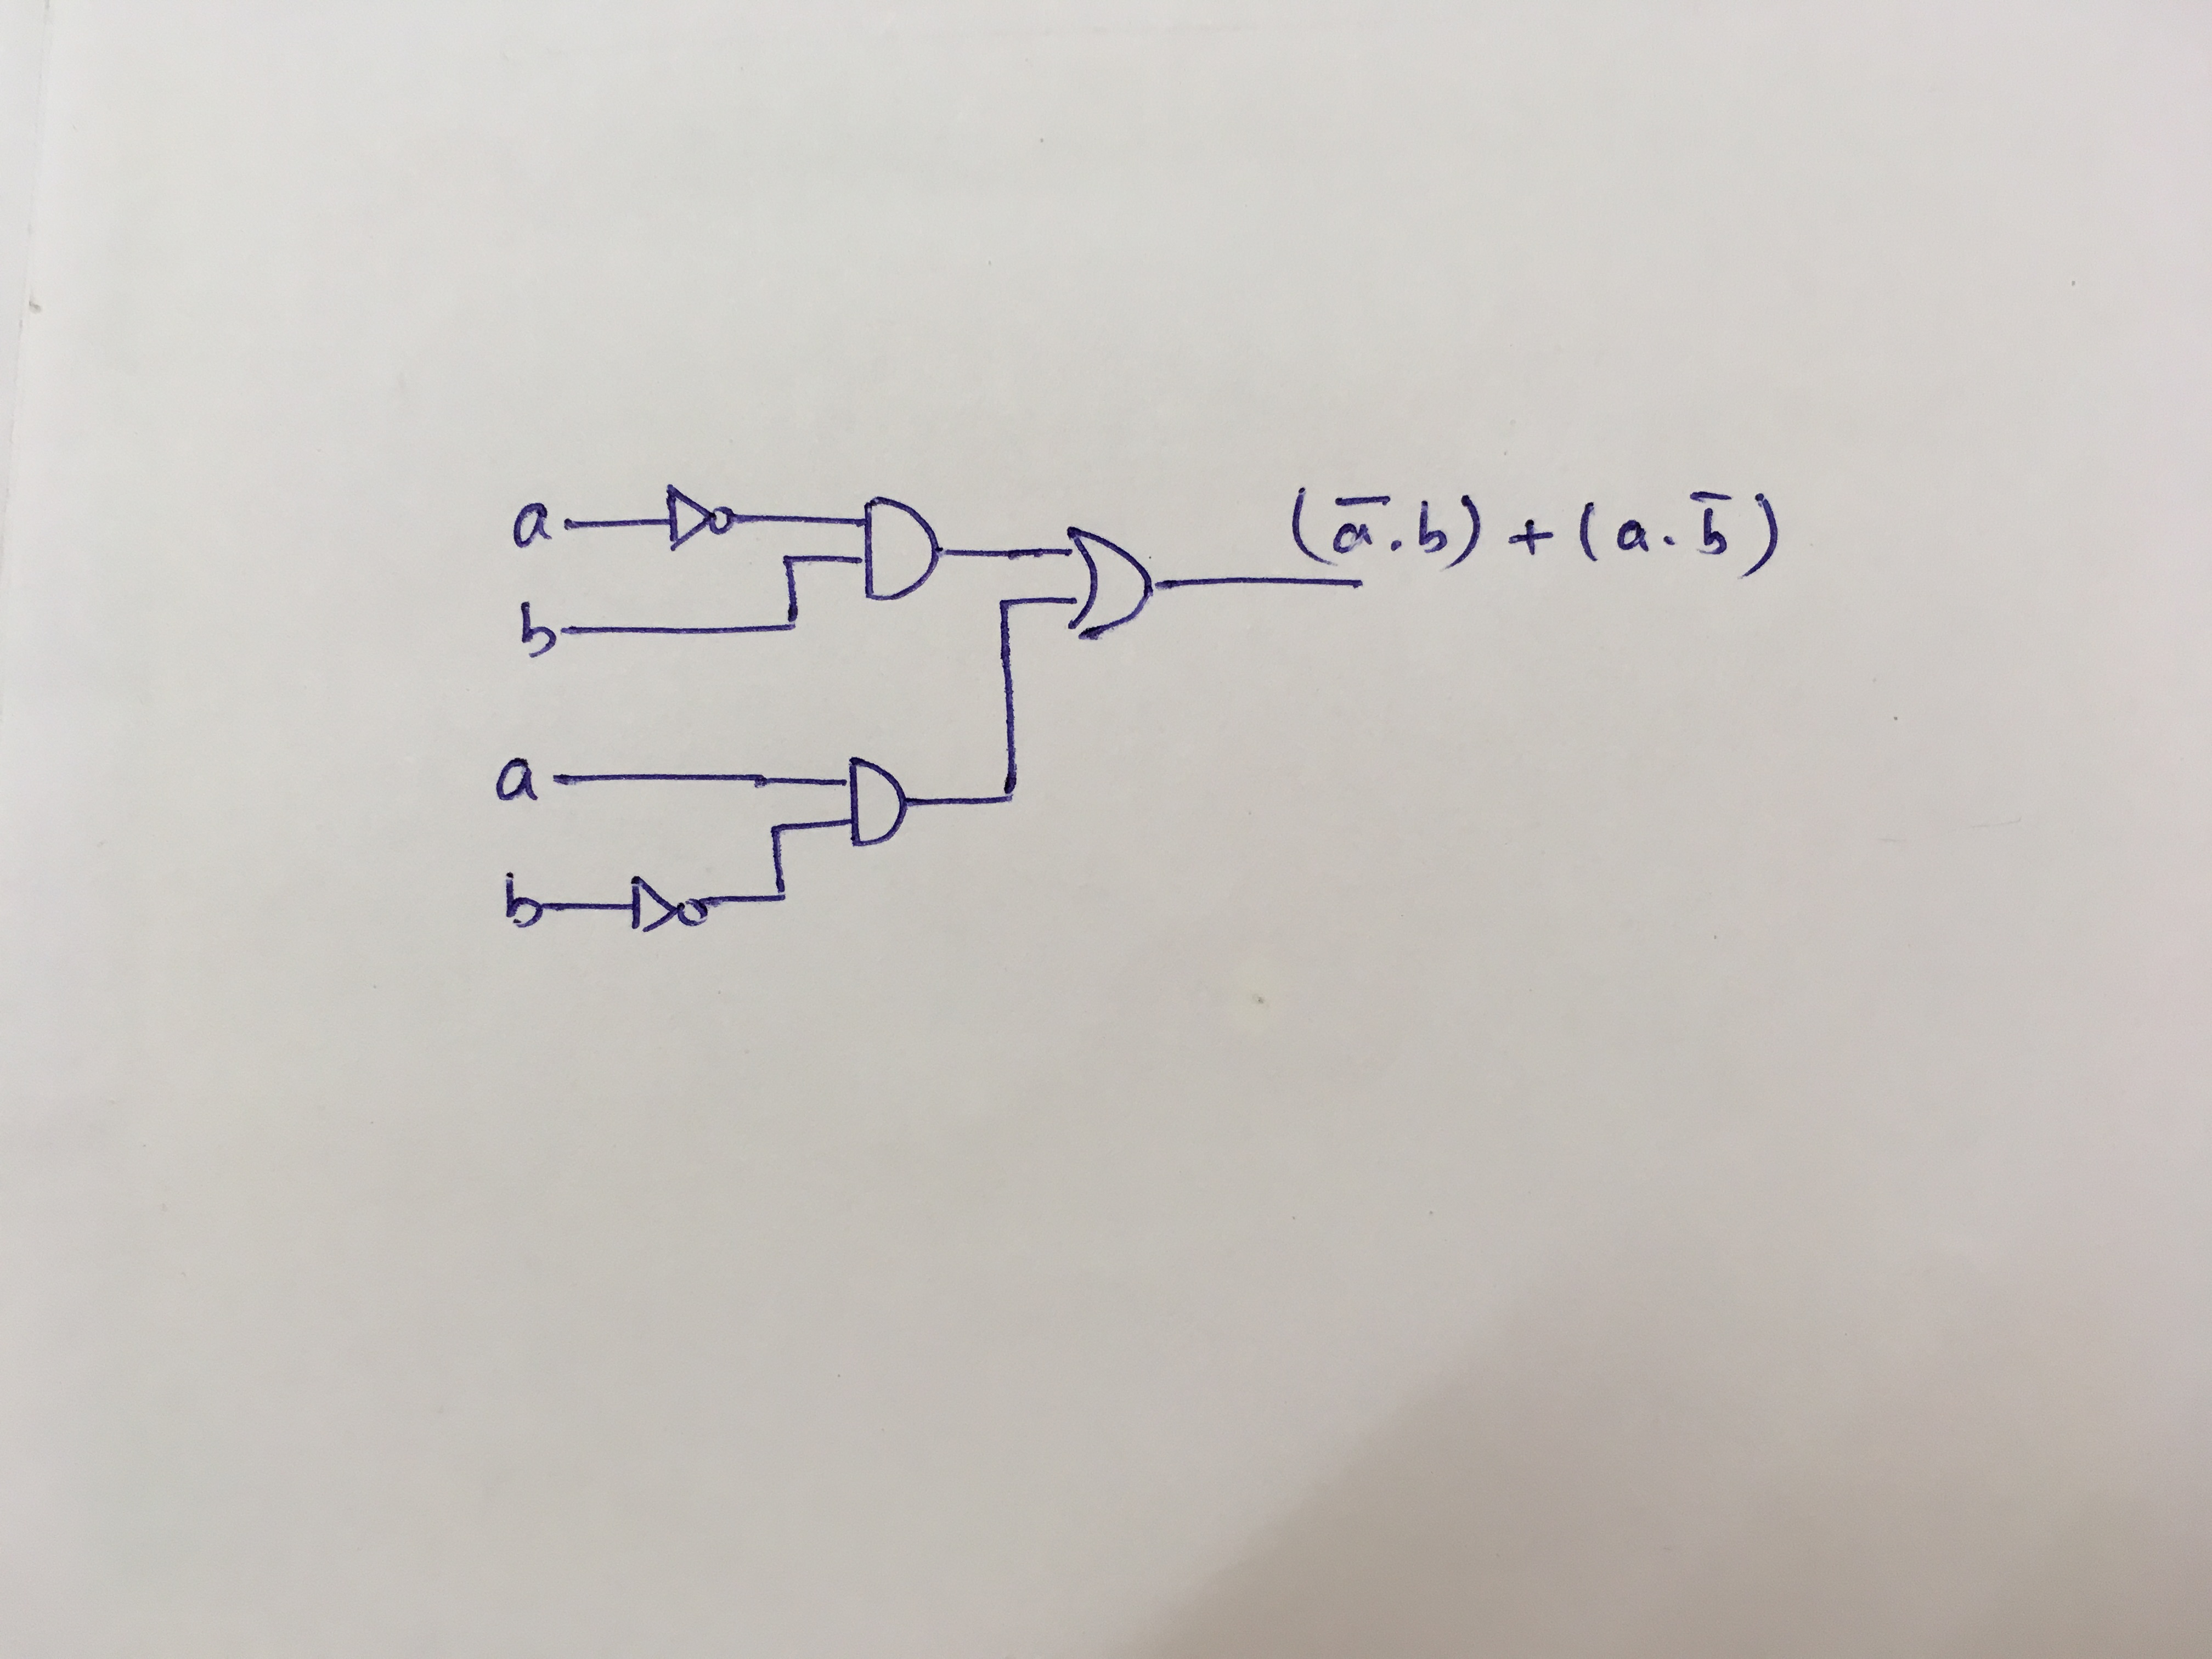 a
b
(ā.b) + (a.b̄)
a
b